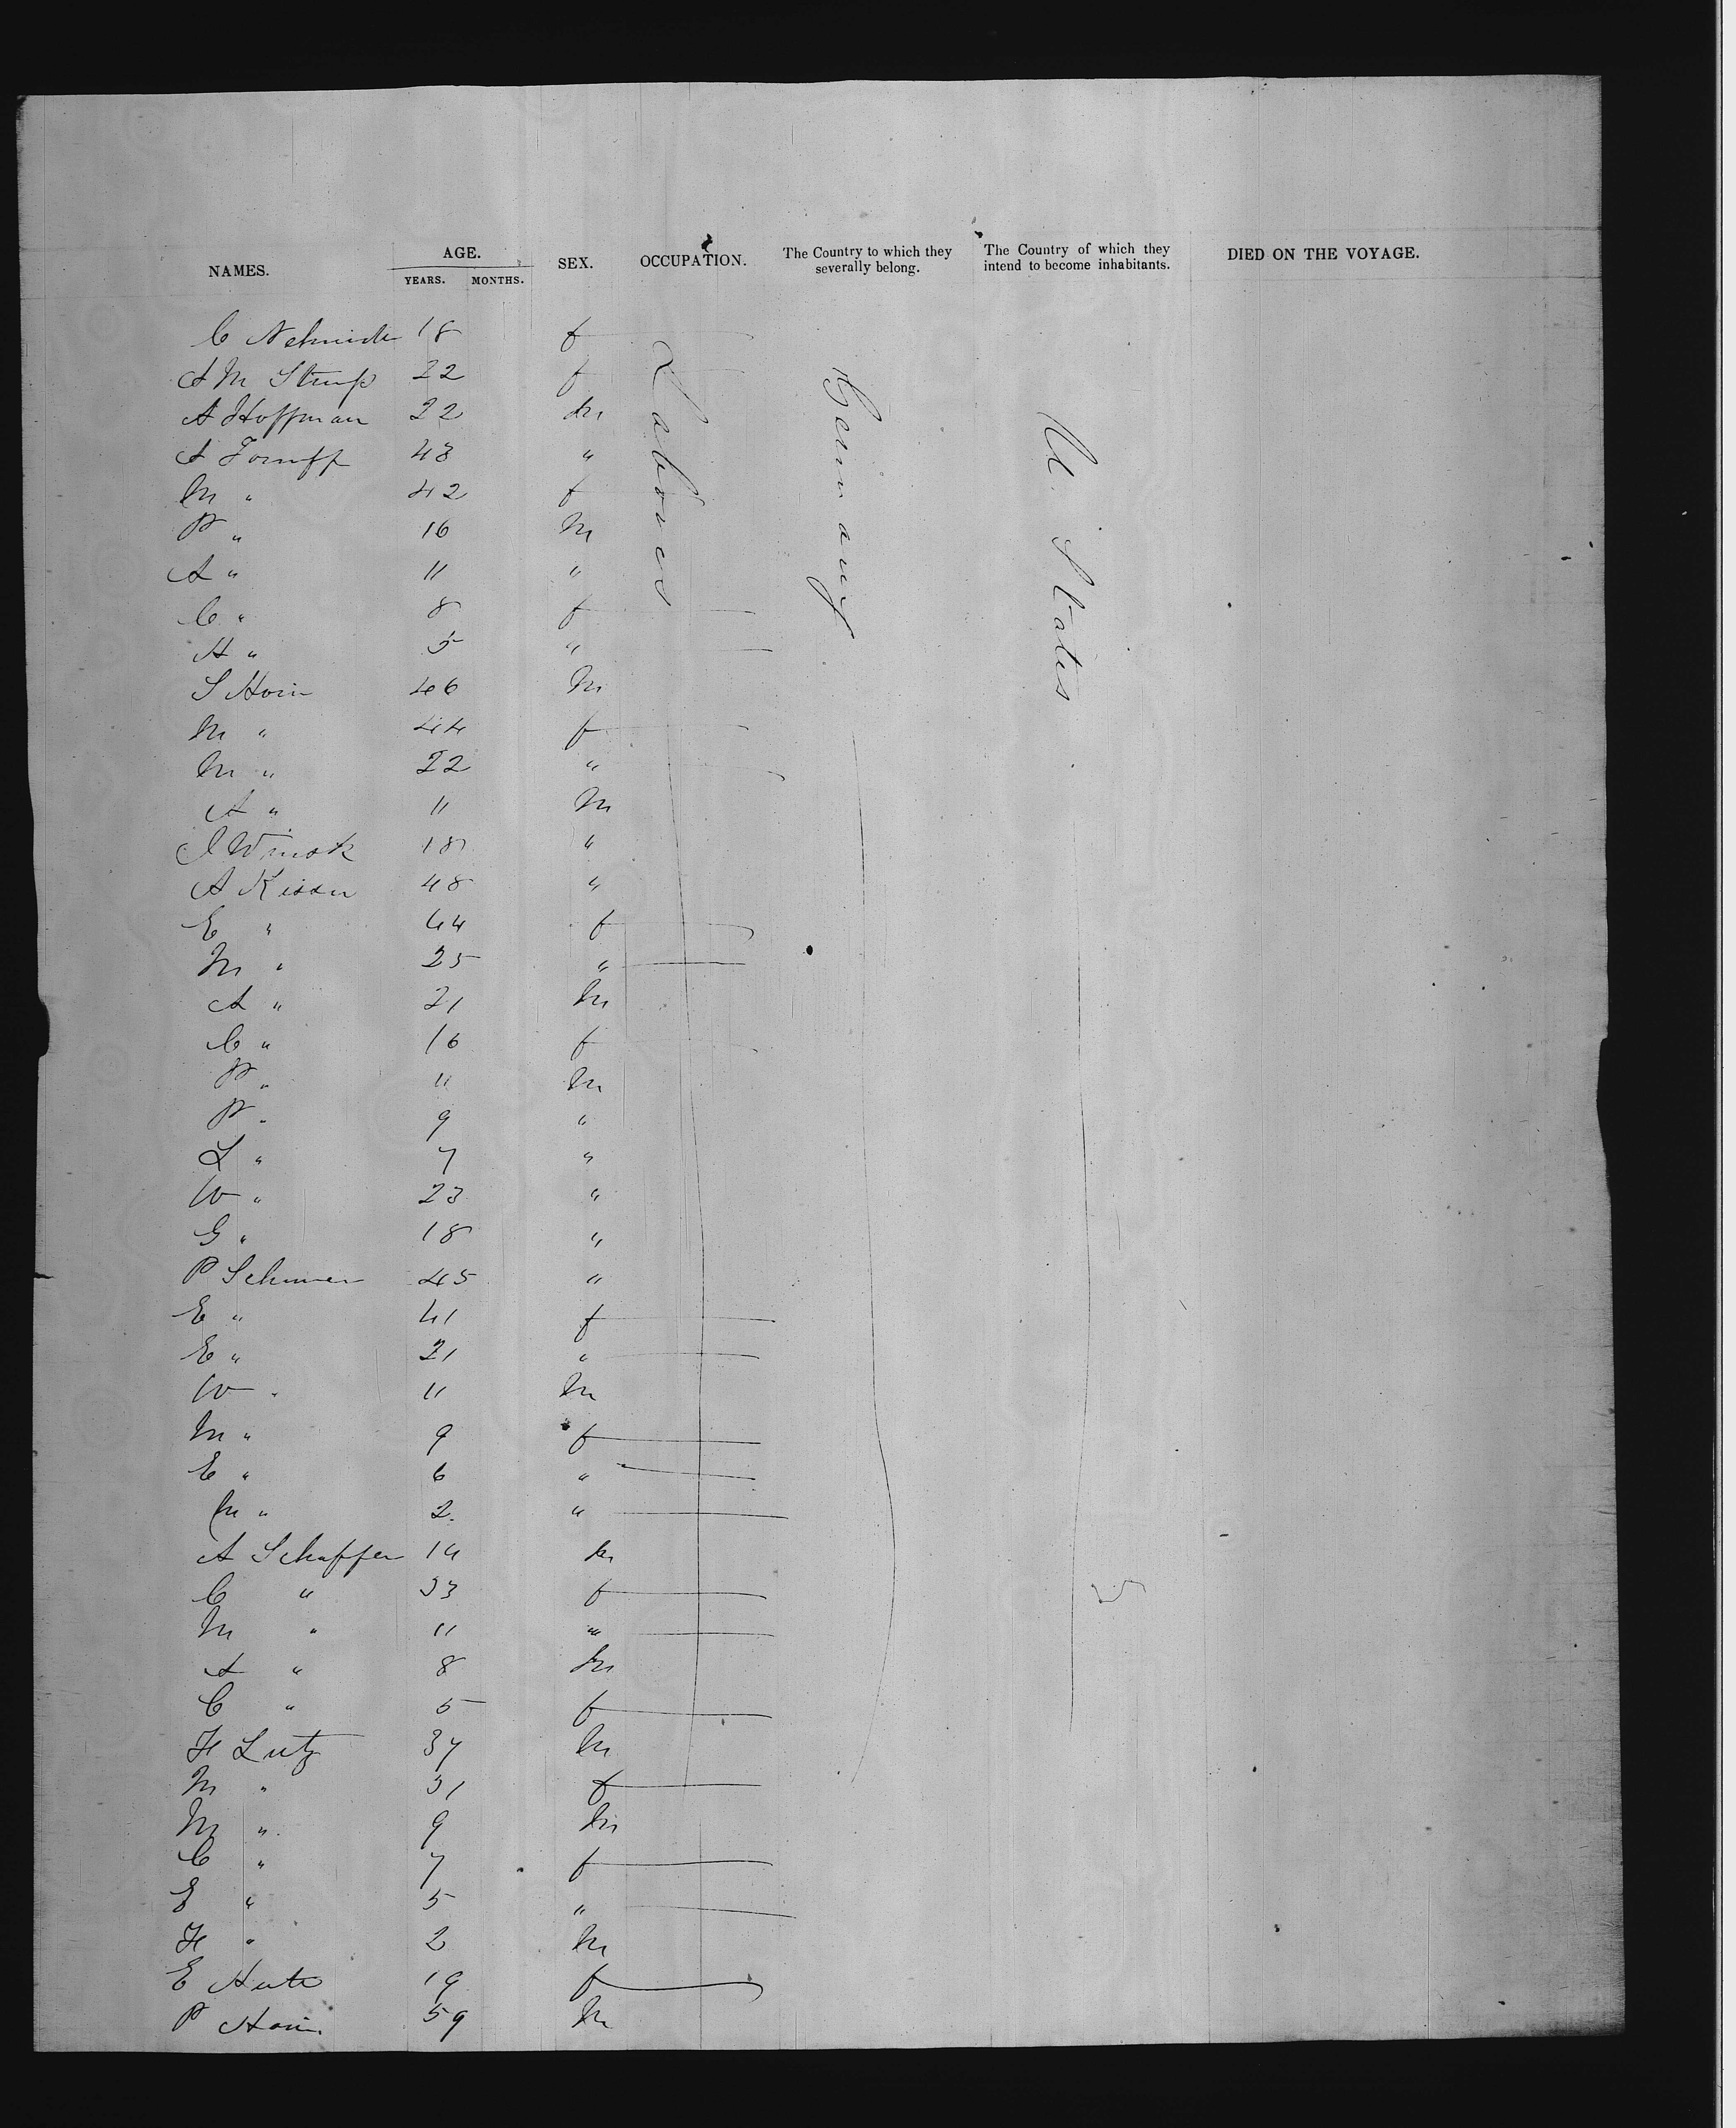 NAMES. AGE. YEARS. MONTHS. SEX. OCCUPATION. The Country to which they severally belong. The Country of which they intend to become inhabitants. DIED ON THE VOYAGE.
C 18 f Labores Germany U. States
A M 22 f
A Hoffman 22 m
A 43 "
M " 42 f
P " 16 m
A " 11 "
C " 8 f
H " 5 "
S Horn 46 m
M " 44 f
M " 22 "
A " 11 m
18 "
A 48 "
E " 44 f
M " 25 "
A " 21 m
C " 16 f
P " 11 m
P " 9 "
L " 7 "
W " 23 "
G " 18 "
P 45 "
E " 41 f
E " 21 "
W " 11 m
M " 9 f
E " 6 "
M " 2 "
A Schaffer 14 m
C " 33 f
M " 11 "
A " 8 m
C " 5 f
H Lutz 37 m
M " 31 f
M " 9 m
C " 7 f
E " 5 "
H " 2 m
E 19 f
P 59 m